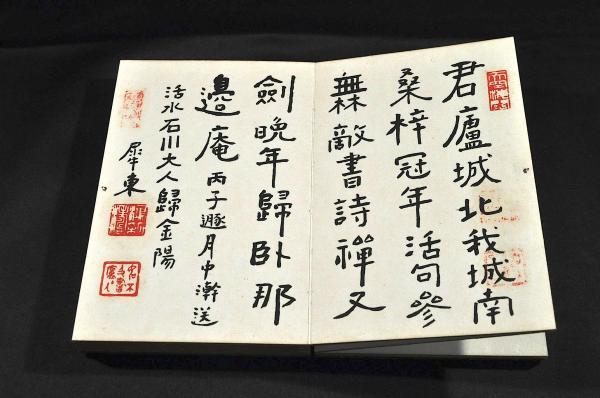 君廬城北我城南
桑梓冠年活句參
無敵書詩禪又
劍晚年歸臥那
邊庵丙子遯月中澣送
活水石川大人歸金陽
犀東